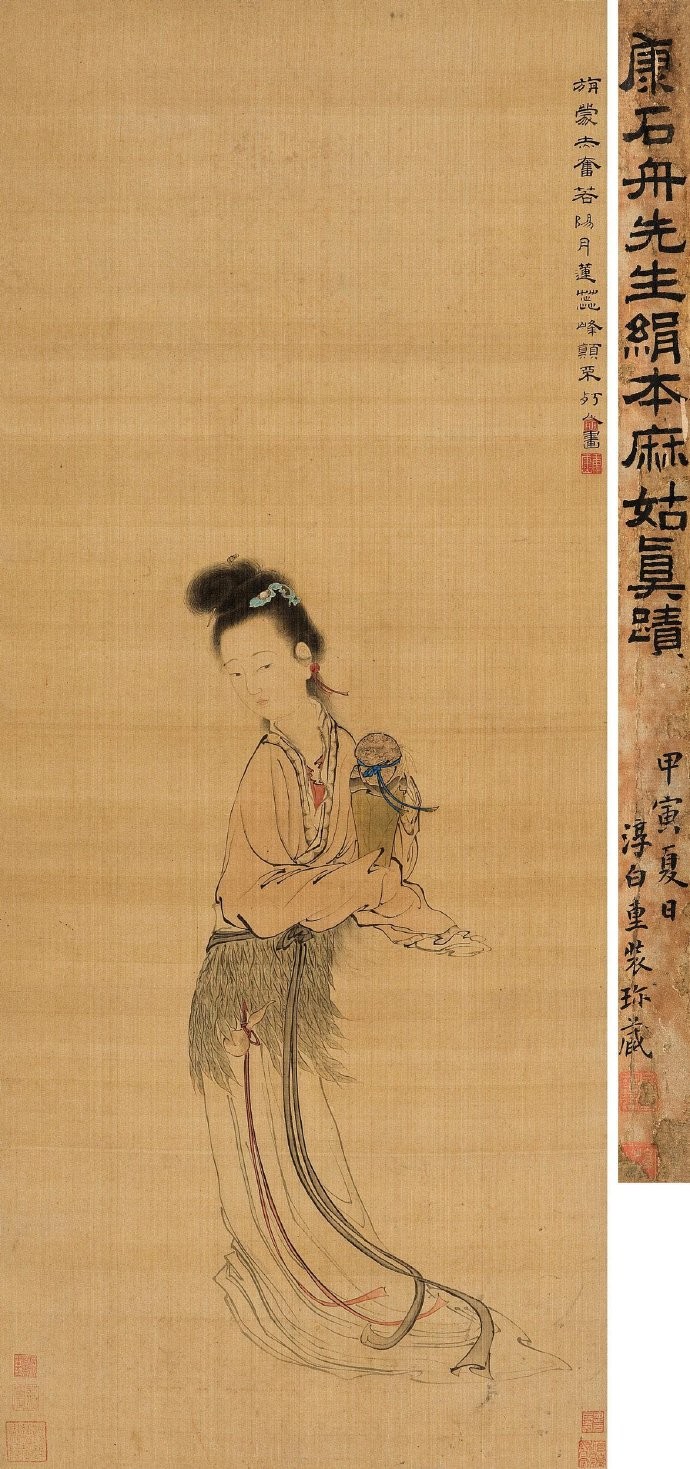 旃蒙赤奮若陽月蓮蕊峰顛朽人畫
康石舟先生絹本麻姑眞蹟
甲寅夏日
淳白重裝珎藏